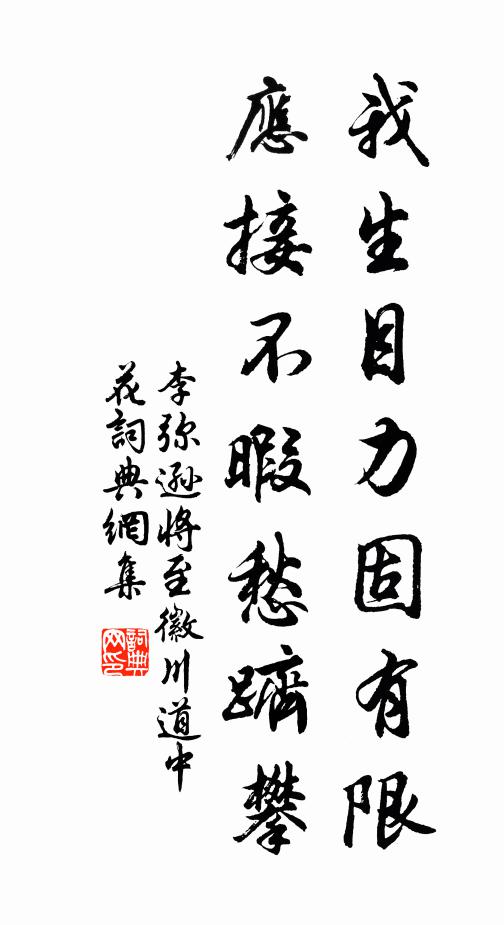 我生目力固有限
應接不暇愁躋攀
李弥遜將至徽川道中
花詞典網集
詞典網印